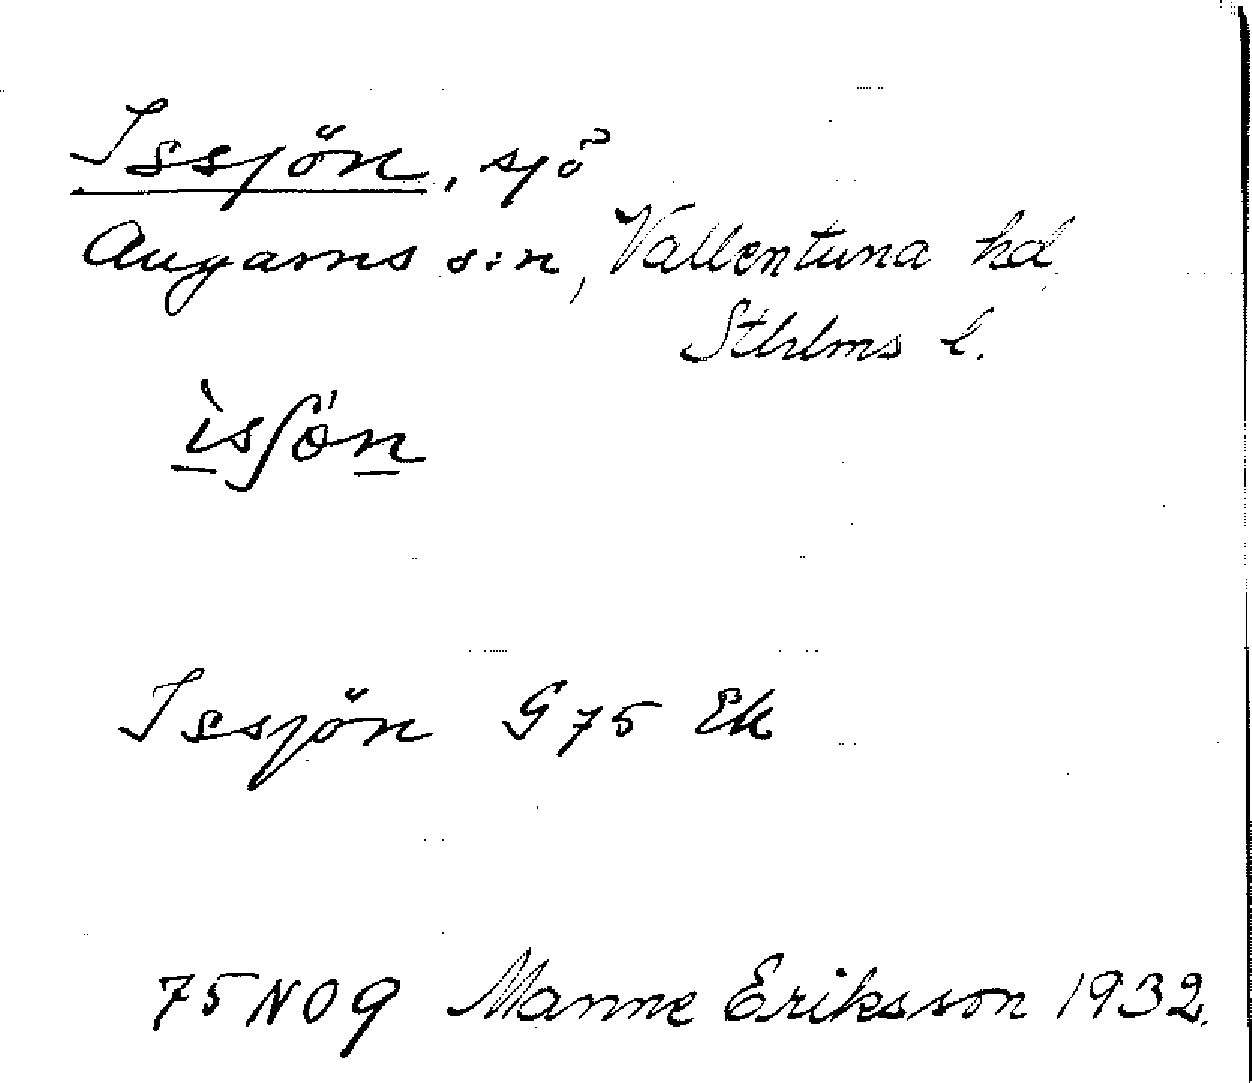 Issjön, sjö
Angarns s:n, Vallentuna hd
Sthlms l.
Issjön G 75 Ek
75 NO 9 Manne Eriksson 1932.